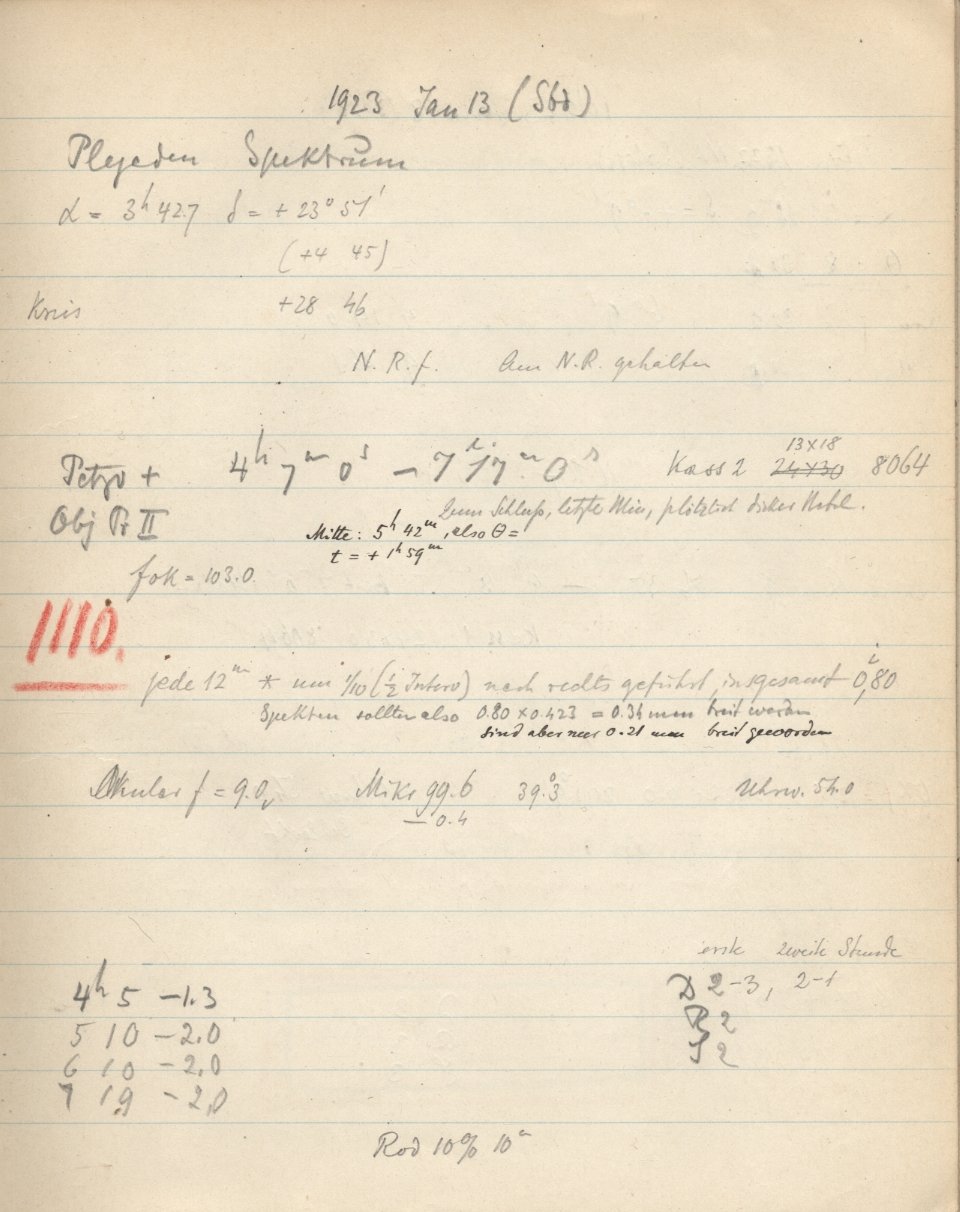 1923 Jan 13 (Sbd)
Plejaden Spektrum
α = 3h 42.7 δ = +23° 51'
(+4 45)
Kreis +28 46
N. R. f. Am N.R. gehalten
13x18
Petzv + 4h 7m 0s – 7h 17m 0s Kass 2 24x30 8064
Obj Pr II Zum Schluß, letzte Min, plötzlich dicker Nebel.
Mitte: 5h 42m, also θ =
t = + 1h 59m
fok = 103.0
1110.
jede 12m * um 1/10 (1/2 Interv) nach rechts geführt, insgesamt 0,80
Spektren sollten also 0.80 x 0.423 = 0.34 mm breit werden
sind aber nur 0.21 mm breit geworden
Okular f = 9.0, Mikr 99.6 39.3° Uhrw. 54.0
– 0.4
erste zweite Stunde
4h 5 –1.3 D 2–3, 2–1
5 10 –2.0 R 2
6 10 –2.0 J 2
7 19 –2,0
Rod 10% 10m